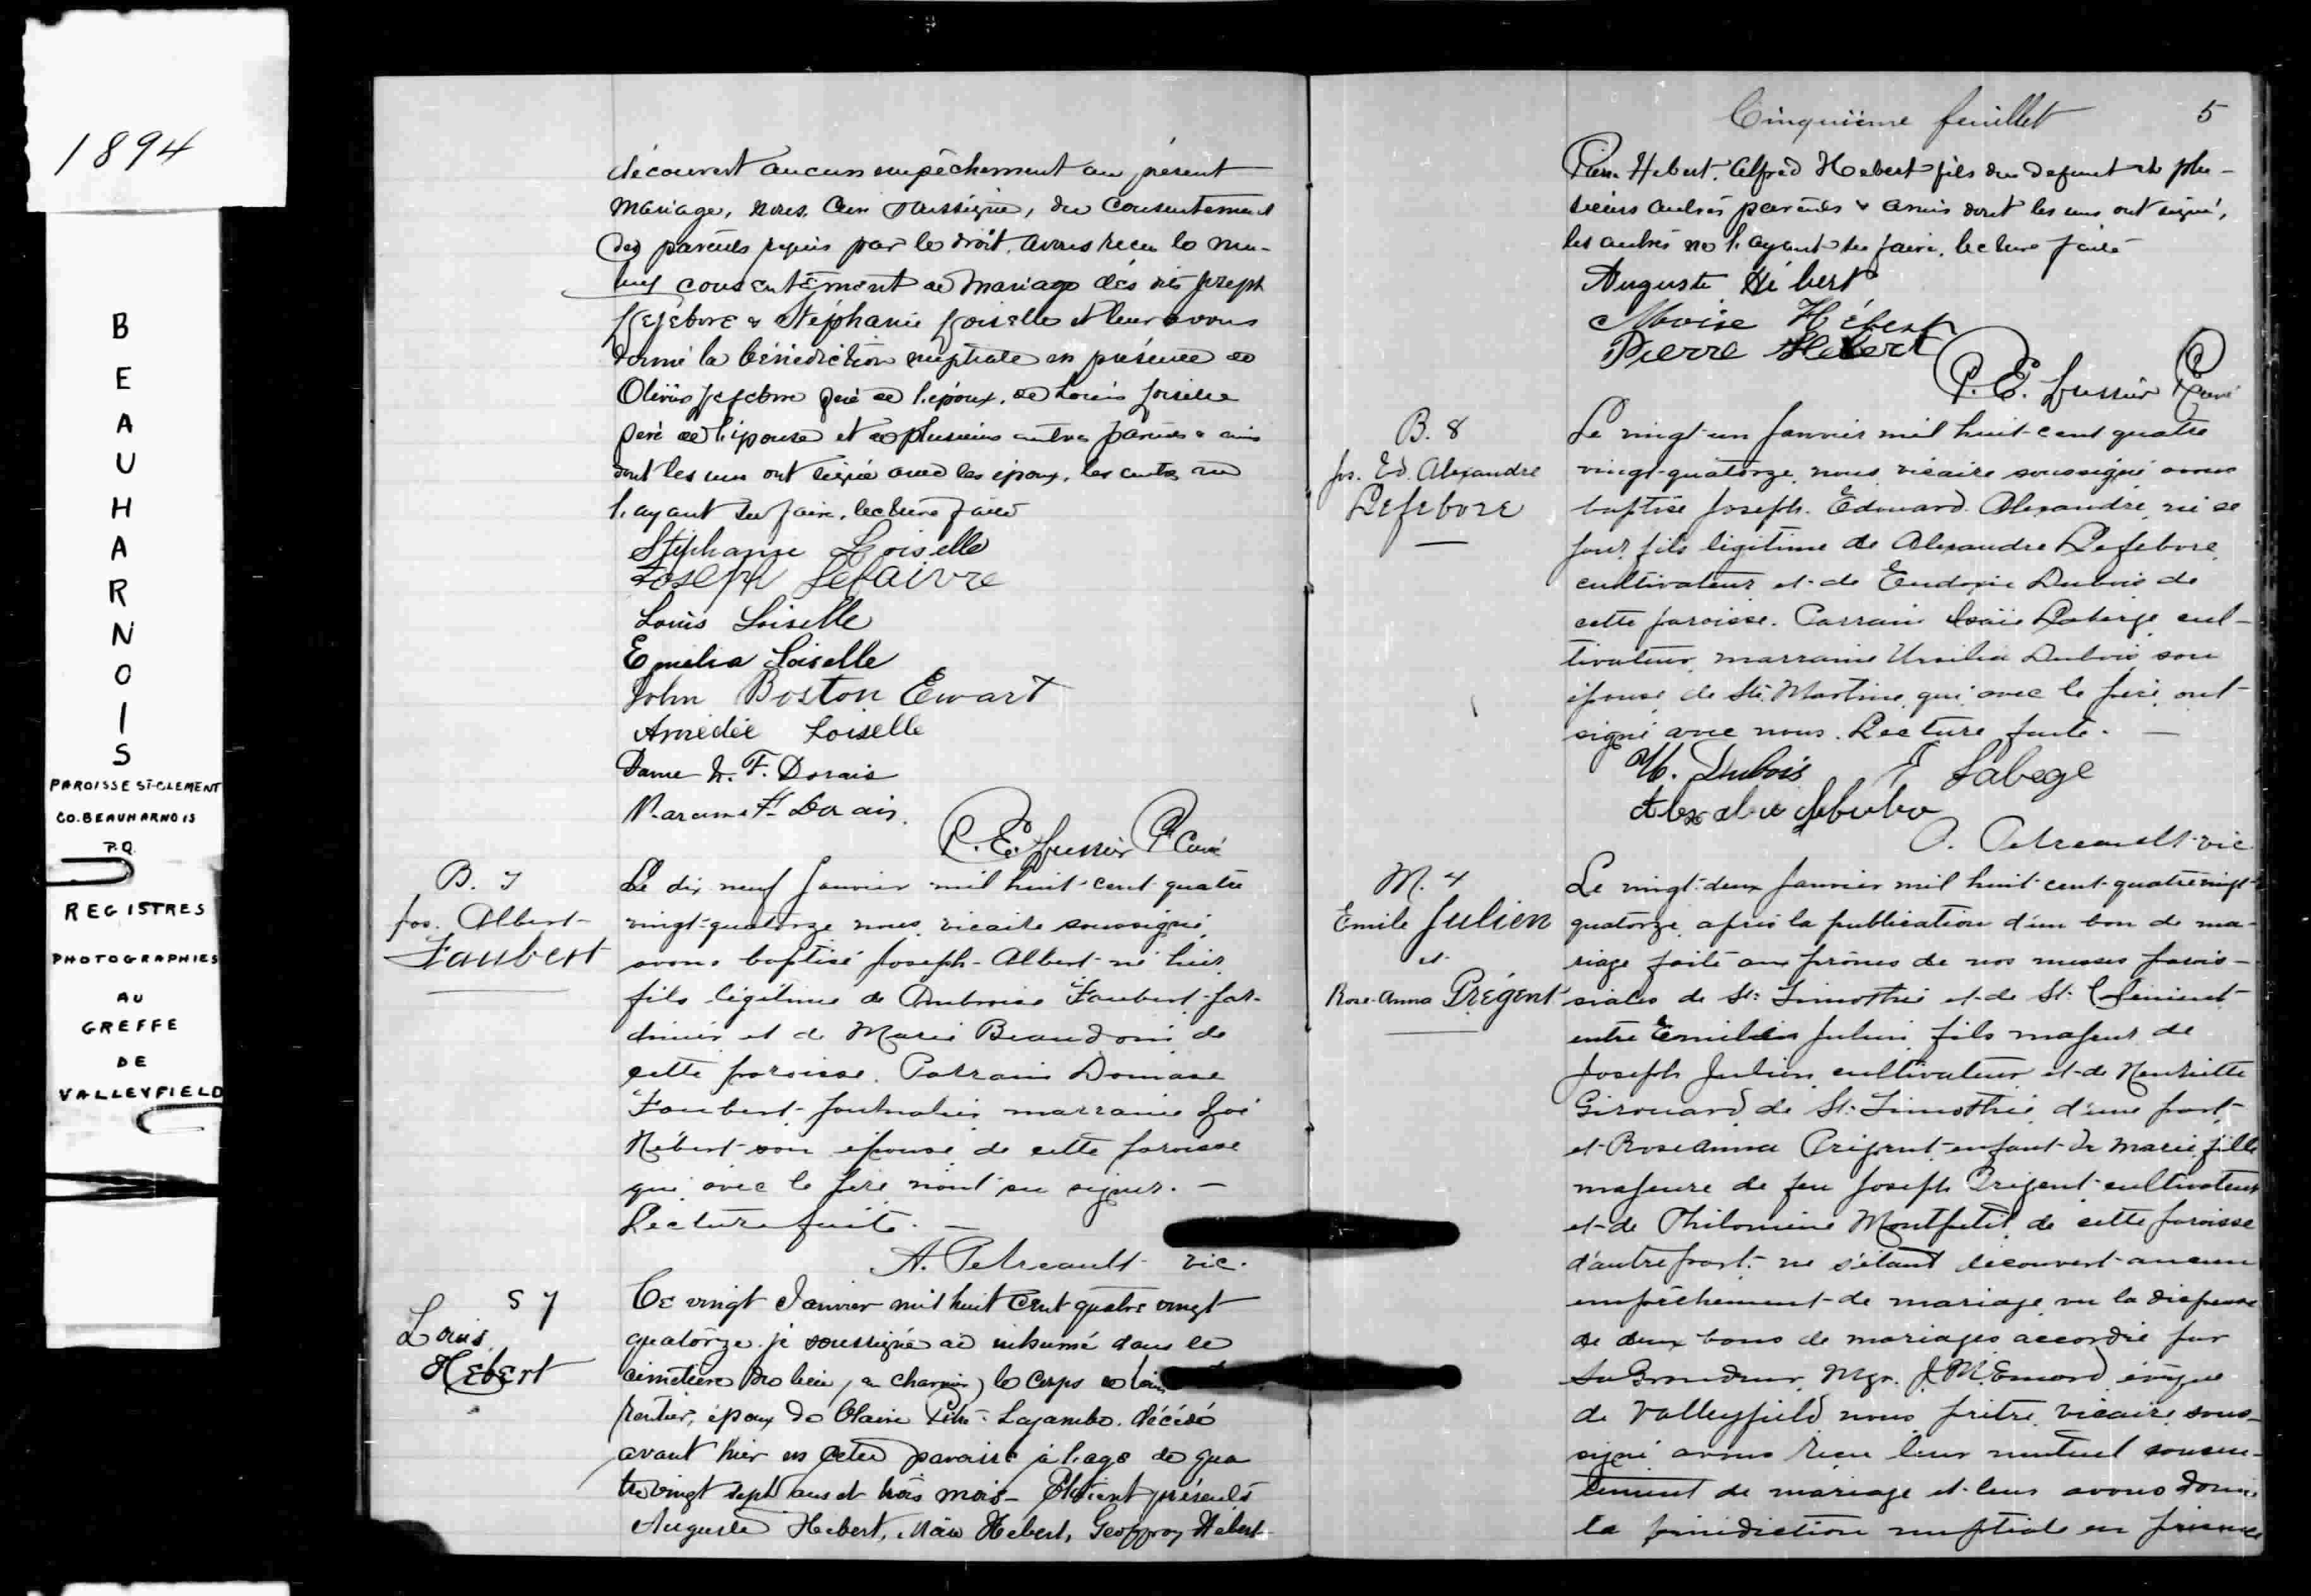 1894
BEAUHARNOIS
PAROISSE ST-CLEMENT
CO. BEAUHARNOIS
P.Q.
REGISTRES
PHOTOGRAPHIES
AU
GREFFE
DE
VALLEYFIELD
découvert aucun empêchement au présent
mariage, nous, Curé soussigné, du consentement
des parents requis par le droit, avons reçu le mu-
tuel consentement de mariage des dits Joseph
Lefebvre & Stéphanie Loiselle et leur avons
donné la bénédiction nuptiale en présence de
Olivier Lefebvre père de l'époux, de Louis Loiselle
père de l'épouse et de plusieurs autres parents & amis
dont les uns ont signé avec les époux, les autres ne
l'ayant su faire, lecture faite
Stéphanie Loiselle
Joseph Lefaivre
Louis Loiselle
Emelia Loiselle
John Boston Ewart
Amédée Loiselle
Dame N. F. Dorais
F. Dorais
P. E. Lussier Ptre Curé
B. 7
Jos. Albert
Faubert
Le dix neuf Janvier mil huit-cent quatre
vingt-quatorze nous vicaire soussigné
avons baptisé Joseph-Albert né hier
fils légitime de Ambroise Faubert jar-
dinier et de Marie Beaudoin de
cette paroisse. Parrain Damase
Faubert journalier marraine Zoé
Hébert son épouse de cette paroisse
qui avec le père n'ont su signer. —
Lecture faite. —
A. Petreault vic.
S 7
Louis
Hebert
Ce vingt Janvier mil huit cent quatre vingt
quatorze je soussigné ai inhumé dans le
cimetière du lieu, (en charnier) le corps de Louis
rentier, époux de Claire Lajambe. décédé
avant hier en cette paroisse à l'age de qua
tre vingt sept ans et trois mois - Étaient présents
Auguste Hebert, Hebert, Geoffroy Hebert
Cinquième feuillet 5
Pierre Hebert. Alfred Hebert fils du defunt et plu-
sieurs autres parents & amis dont les uns ont signé,
les autres ne l'ayant su faire. lecture faite
Auguste Hébert
Moise Hébert
Pierre Hebert
P. E. Lussier Ptre Curé
B. 8
Jos. Ed. Alexandre
Lefebvre
Le vingt-un Janvier mil huit-cent quatre
vingt-quatorze, nous vicaire soussigné avons
baptisé Joseph. Edouard. Alexandre né ce
jour, fils légitime de Alexandre Lefebvre
cultivateur et de Eudoxie Dubois de
cette paroisse. Parrain Isaïe Laberge cul-
tivateur, marraine Dubois son
épouse de Ste. Martine qui avec le père, ont
signé avec nous. Lecture faite. —
Dubois E Labege
P. Petreault vic
M. 4
Emile Julien
et
Rose-Anna Prégent
Le vingt-deux Janvier mil huit-cent-quatre vingt-
quatorze, après la publication d'un ban de ma-
riage faite aux prônes de nos messes parois-
siales de St: Timothée et de St: Clément
entre Julien fils majeur de
Joseph Julien cultivateur et de Henriette
Girouard de St: Timothée d'une part
et Roseanna Prégent enfant de marie fille
majeure de feu Joseph Prégent cultivateur
et de Philomène Montpetit de cette paroisse
d'autre part. ne s'étant découvert aucun
empêchement de mariage vu la dispense
de deux bans de mariages accordée par
Sa Grandeur Mgr. J. M. Emard évêque
de Valleyfield nous prêtre vicaire sous-
signé avons reçu leur mutuel consen-
tement de mariage et leur avons donné
la bénédiction nuptiale en présence